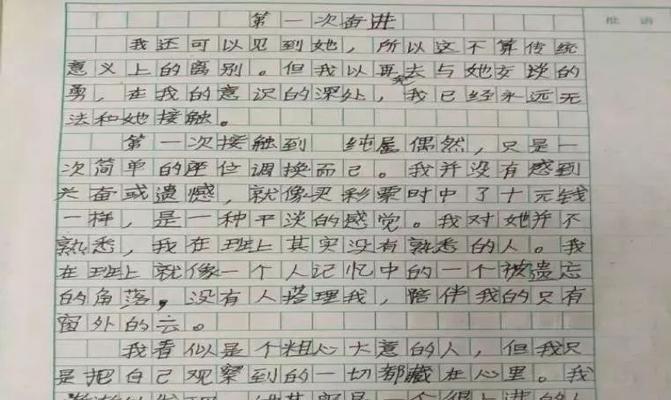 第一次奋进
批 语
我还可以见到她，所以这不算传统
意义上的离别。但我以再无去与她交谈的
勇，在我的意识的深处，我已经永远无
法和她接触。
第一次接触到 纯属偶然，只是一
次简单的座位调换而已。我并没有感到
兴奋或遗憾，就像买彩票时中了十元钱
一样，是一种平淡的感觉。我对她并不
熟悉，我在班上其实没有熟悉的人。我
在班上就像一个人记忆中的一个被遗忘
的角落，没有人搭理我，陪伴我的只有
窗外的云。
我看似是个粗心大意的人，但我只
是把自己观察到的一切都藏在心里。我